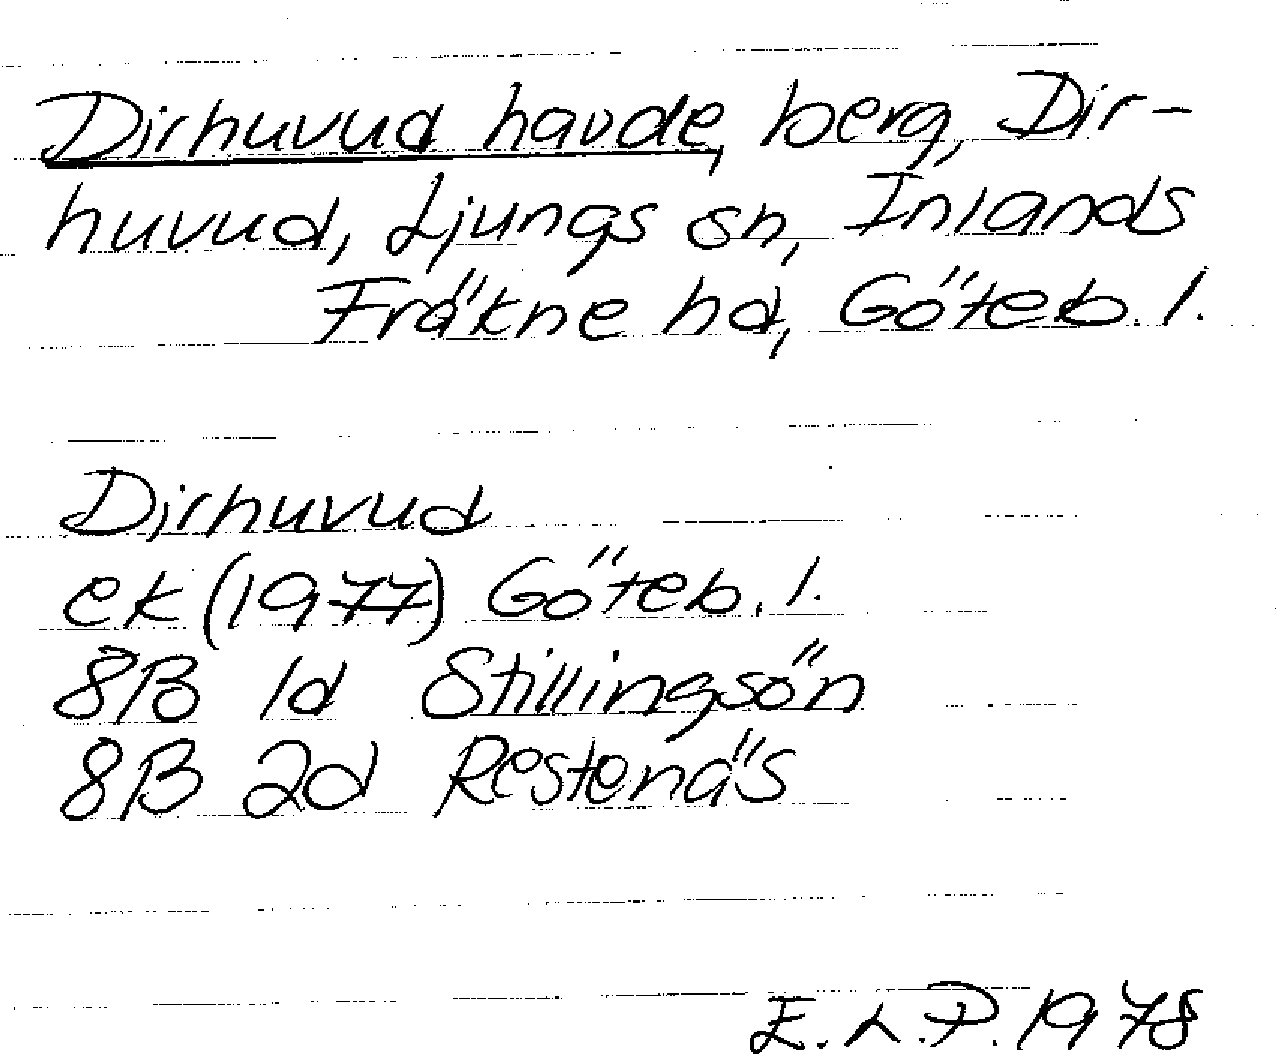 Dirhuvud havde, berg, Dir-
huvud, Ljungs sn, Inlands
Fräkne hd, Göteb. l.
Dirhuvud
ek (1977) Göteb. l.
8B 1d Stillingsön
8B 2d Restenäs
E. L. P. 1978